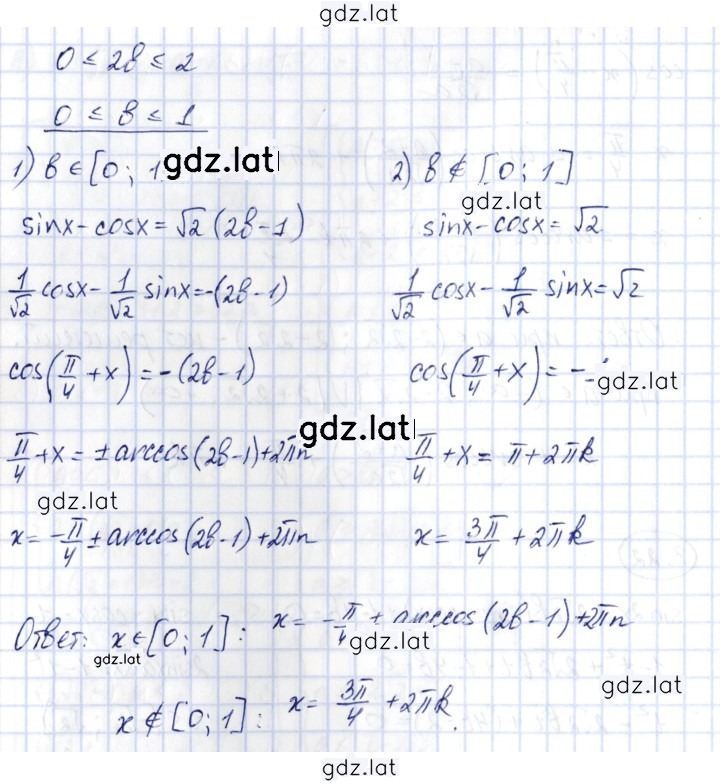 gdz.lat
0 ≤ 2в ≤ 2
0 ≤ в ≤ 1
1) в ∈ [0; 1
gdz.lat
sinx - cosx = √2 (2в-1)
1/√2 cosx - 1/√2 sinx = -(2в-1)
cos(π/4 + x) = -(2в-1)
gdz.lat
π/4 + x = ± arccos(2в-1) + 2πn
gdz.lat
x = -π/4 ± arccos(2в-1) + 2πn
2) в ∉ [0; 1]
gdz.lat
sinx - cosx = √2
1/√2 cosx - 1/√2 sinx = √2
cos(π/4 + x) = -
gdz.lat
π/4 + x = π + 2πk
x = 3π/4 + 2πk
Ответ: x ∈ [0; 1]: x = -π/4 ± arccos(2в-1) + 2πn
gdz.lat
gdz.lat
gdz.lat
x ∉ [0; 1]: x = 3π/4 + 2πk.
gdz.lat